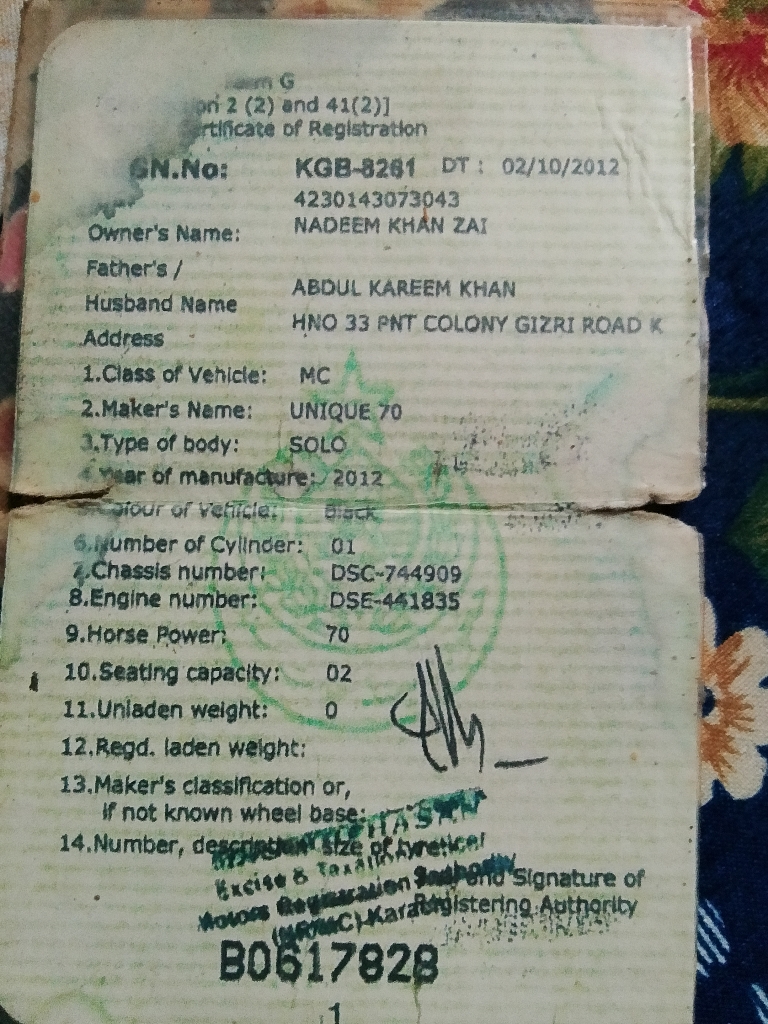 G
on 2 (2) and 41(2)]
rtificate of Registration
GN.No: KGB-8261 DT : 02/10/2012
4230143073043
Owner's Name: NADEEM KHAN ZAI
Father's /
Husband Name ABDUL KAREEM KHAN
Address HNO 33 PNT COLONY GIZRI ROAD K
1.Class of Vehicle: MC
2.Maker's Name: UNIQUE 70
3.Type of body: SOLO
4.Year of manufacture: 2012
5.Colour of Vehicle: Black
6.Number of Cylinder: 01
7.Chassis number: DSC-744909
8.Engine number: DSE-441835
9.Horse Power: 70
10.Seating capacity: 02
11.Unladen weight: 0
12.Regd. laden weight:
13.Maker's classification or,
if not known wheel base:
14.Number, description size of
Excise & Taxation
and Signature of
Motors Registration Authority
Registering Authority
B0617828
1